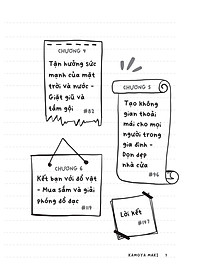 CHƯƠNG 4
Tận hưởng sức
mạnh của mặt
trời và nước -
Giặt giũ và
tắm gội
#82
CHƯƠNG 5
Tạo không
gian thoải
mái cho mọi
người trong
gia đình -
Dọn dẹp
nhà cửa
#96
CHƯƠNG 6
Kết bạn với đồ vật
- Mua sắm và giải
phóng đồ đạc
#119
Lời kết
#147
KAMOTA MAKI 7